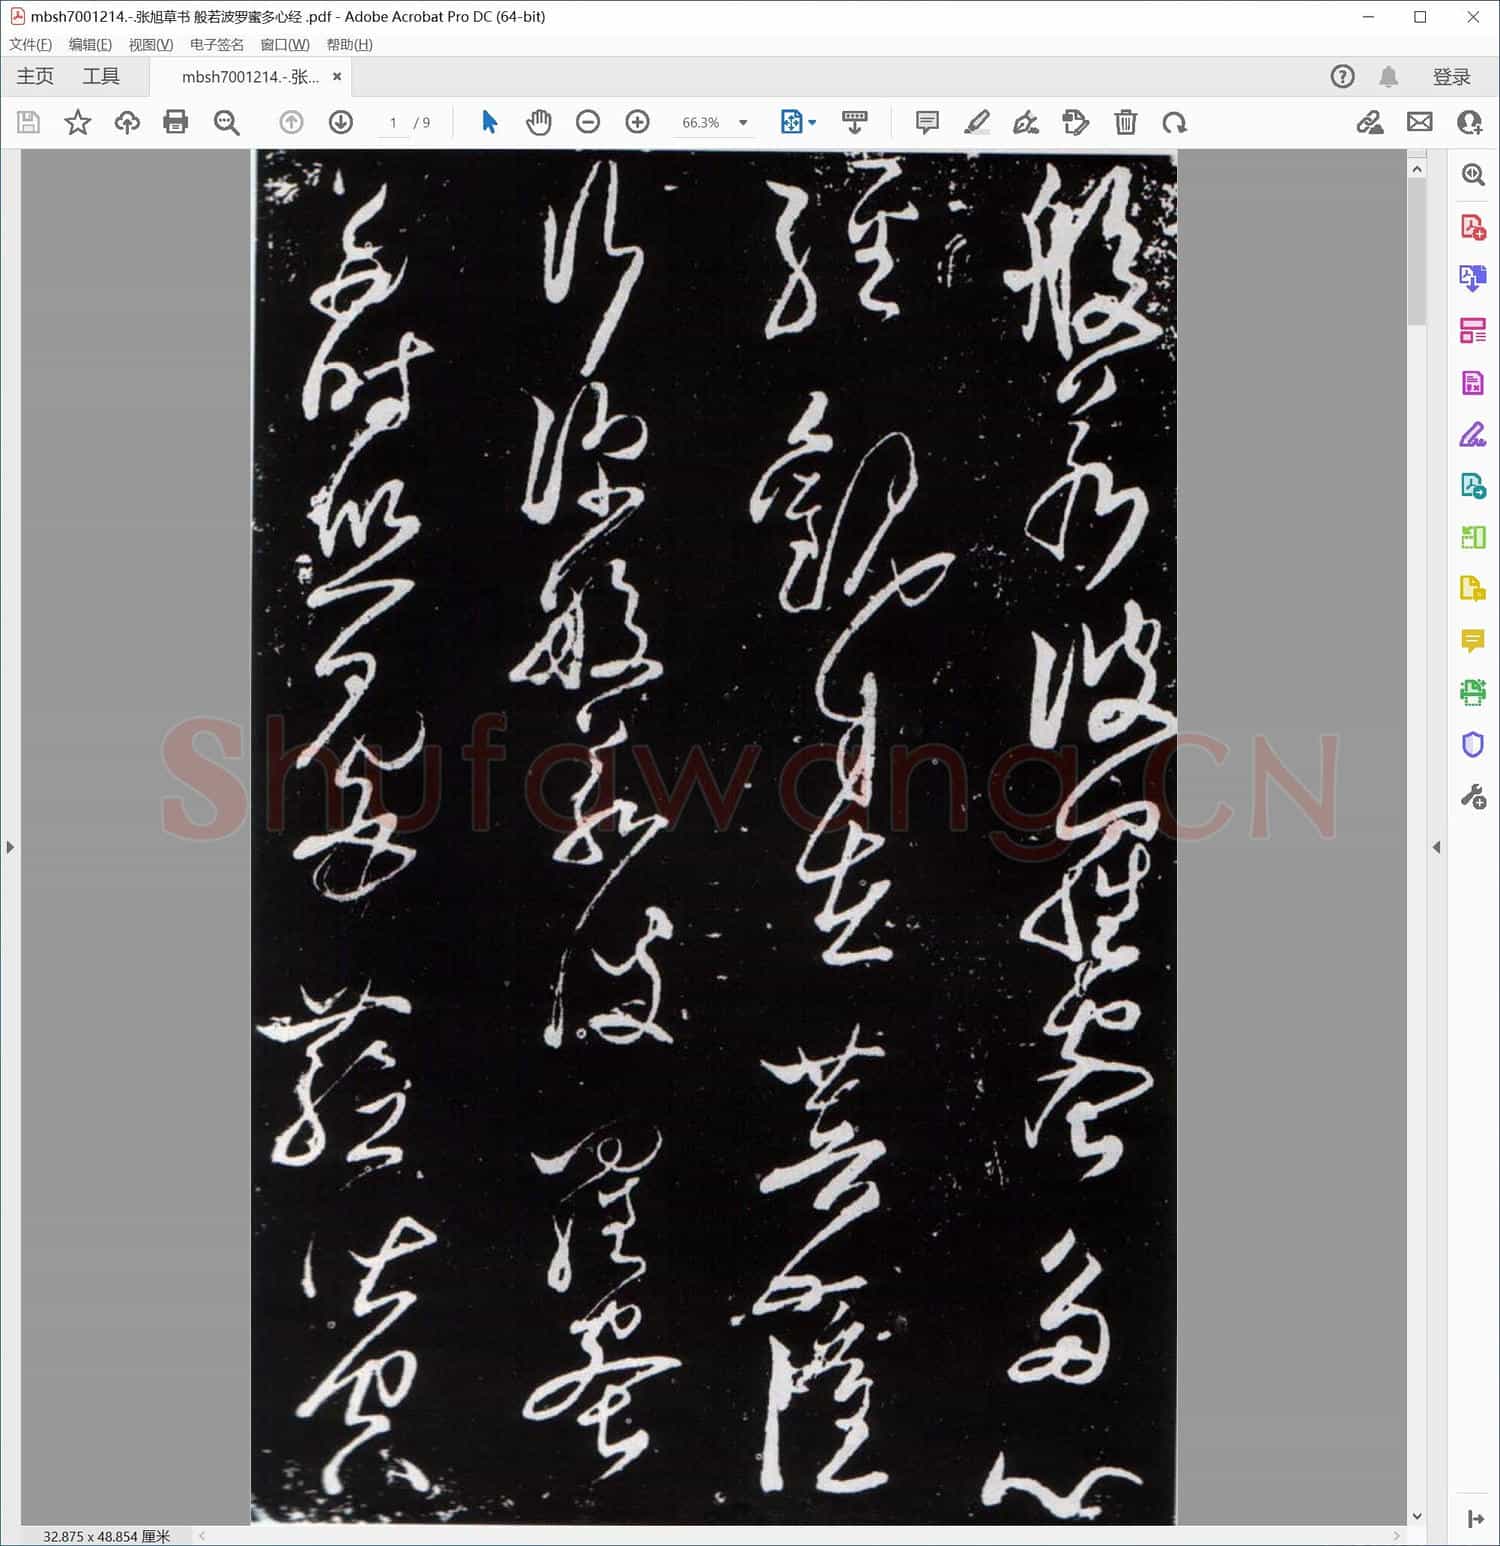 mbsh7001214.-.张旭草书 般若波罗蜜多心经 .pdf - Adobe Acrobat Pro DC (64-bit)
文件(F) 编辑(E) 视图(V) 电子签名 窗口(W) 帮助(H)
主页 工具 mbsh7001214.-.张... × 登录
1 / 9 66.3%
般若波羅蜜多心
經觀自在菩薩
行深般若波羅蜜
多時照見五蘊皆空
Shufawang.CN
32.875 x 48.854 厘米